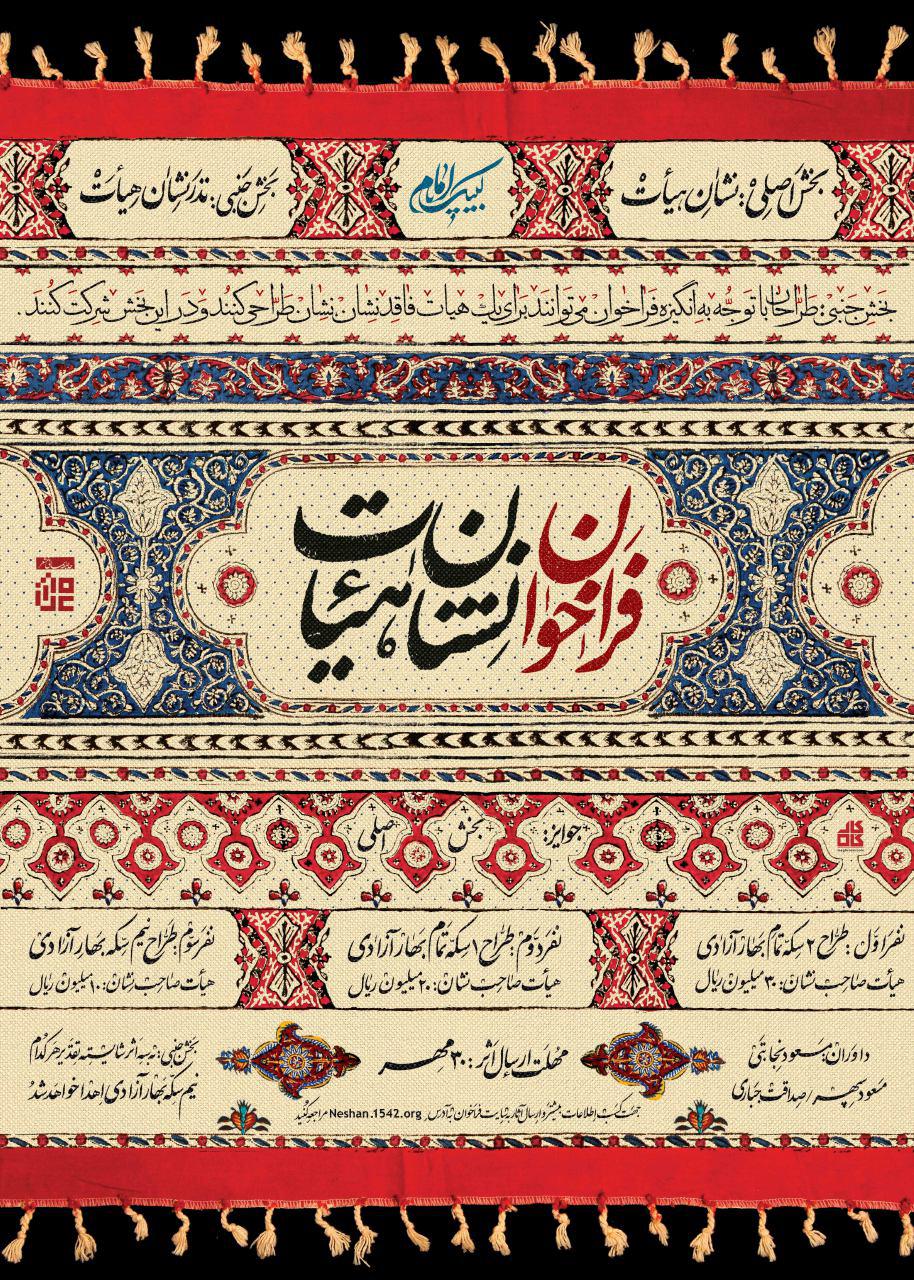 بخش اصلی: نشان هیأت
لبیک یا امام
بخش جنبی: نذر نشان هیأت
بخش جنبی: طراحان با توجه به انگیزه فراخوان می‌توانند برای یک هیات فاقد نشان، نشان طراحی کنند و در این بخش شرکت کنند.
فراخوان نشان هیئات
جوایز: بخش اصلی
نفر اول: طراح ۲ سکه تمام بهار آزادی
هیأت صاحب نشان: ۳۰ میلیون ریال
نفر دوم: طراح ۱ سکه تمام بهار آزادی
هیأت صاحب نشان: ۲۰ میلیون ریال
نفر سوم: طراح نیم سکه بهار آزادی
هیأت صاحب نشان: ۱۰ میلیون ریال
داوران: مسعود نجابتی
مسعود سپهر / صداقت جباری
مهلت ارسال اثر: ۳۰ مهر
بخش جنبی: به سه اثر شایسته تقدیر هر کدام
نیم سکه بهار آزادی اهدا خواهد شد
جهت کسب اطلاعات بیشتر و ارسال آثار به سایت فراخوان به آدرس Neshan.1542.org مراجعه کنید